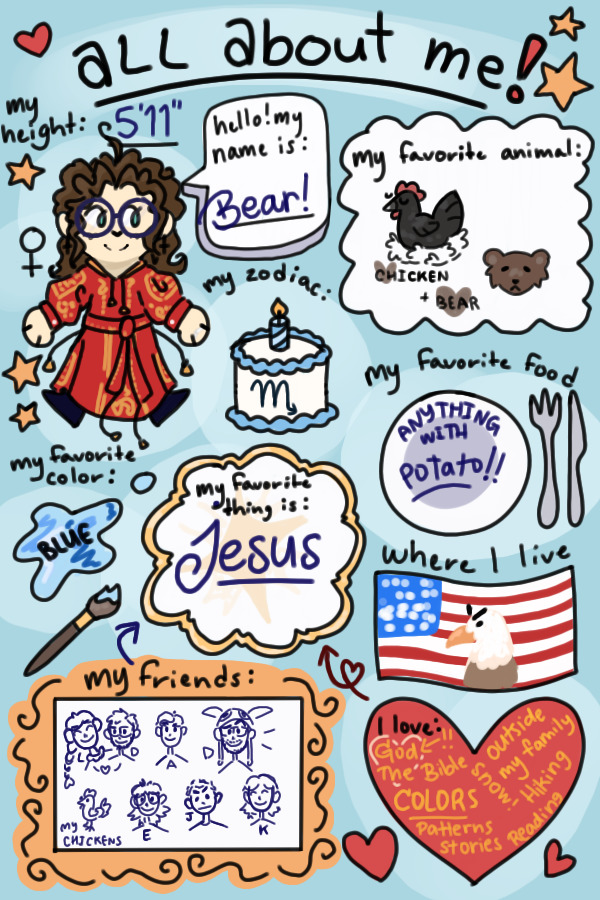 all about me!
my
height: 5'11"
hello! my
name is:
Bear!
my favorite animal:
CHICKEN
+ BEAR
my zodiac:
♏
my favorite food
ANYTHING
WITH
POTATO!!
my favorite
color:
BLUE
my favorite
thing is:
Jesus
where I live
my friends:
L
A
my
CHICKENS
E
J
K
I love:
God!!
The Bible
COLORS
Patterns
stories
Snow!
outside
my family
Hiking
Reading